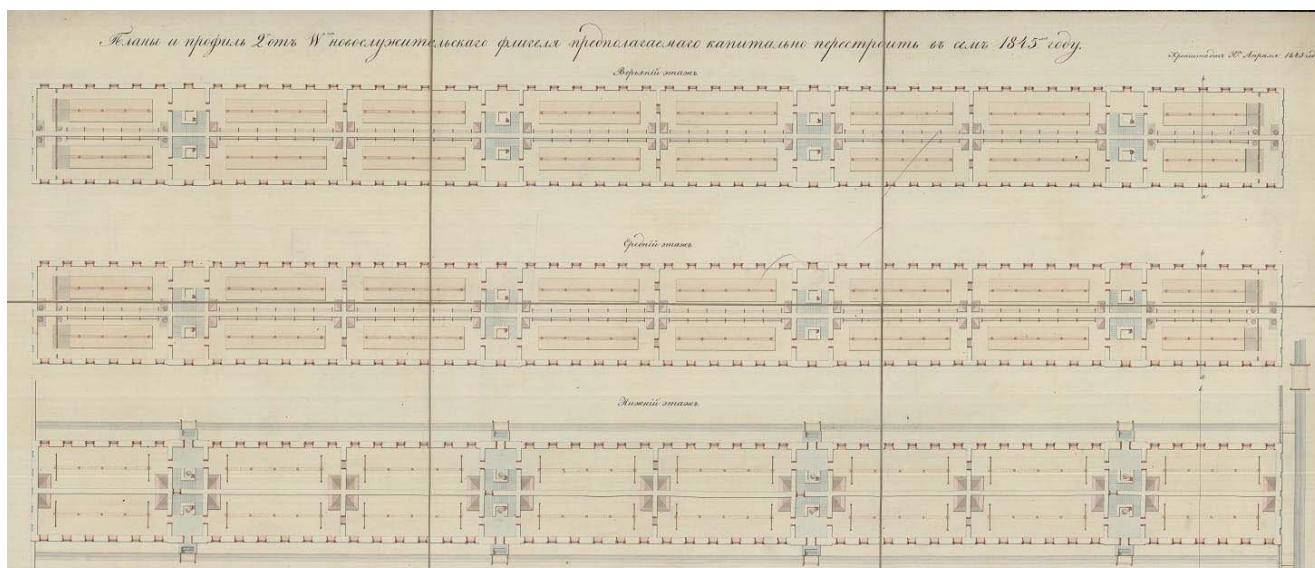 Планы и профиль 2 отъ W новослужительскаго флигеля предполагаемаго капитально перестроить въ семъ 1845 году.
Кронштадтъ Апрѣля 1845
Верхній этажъ
Средній этажъ
Нижній этажъ